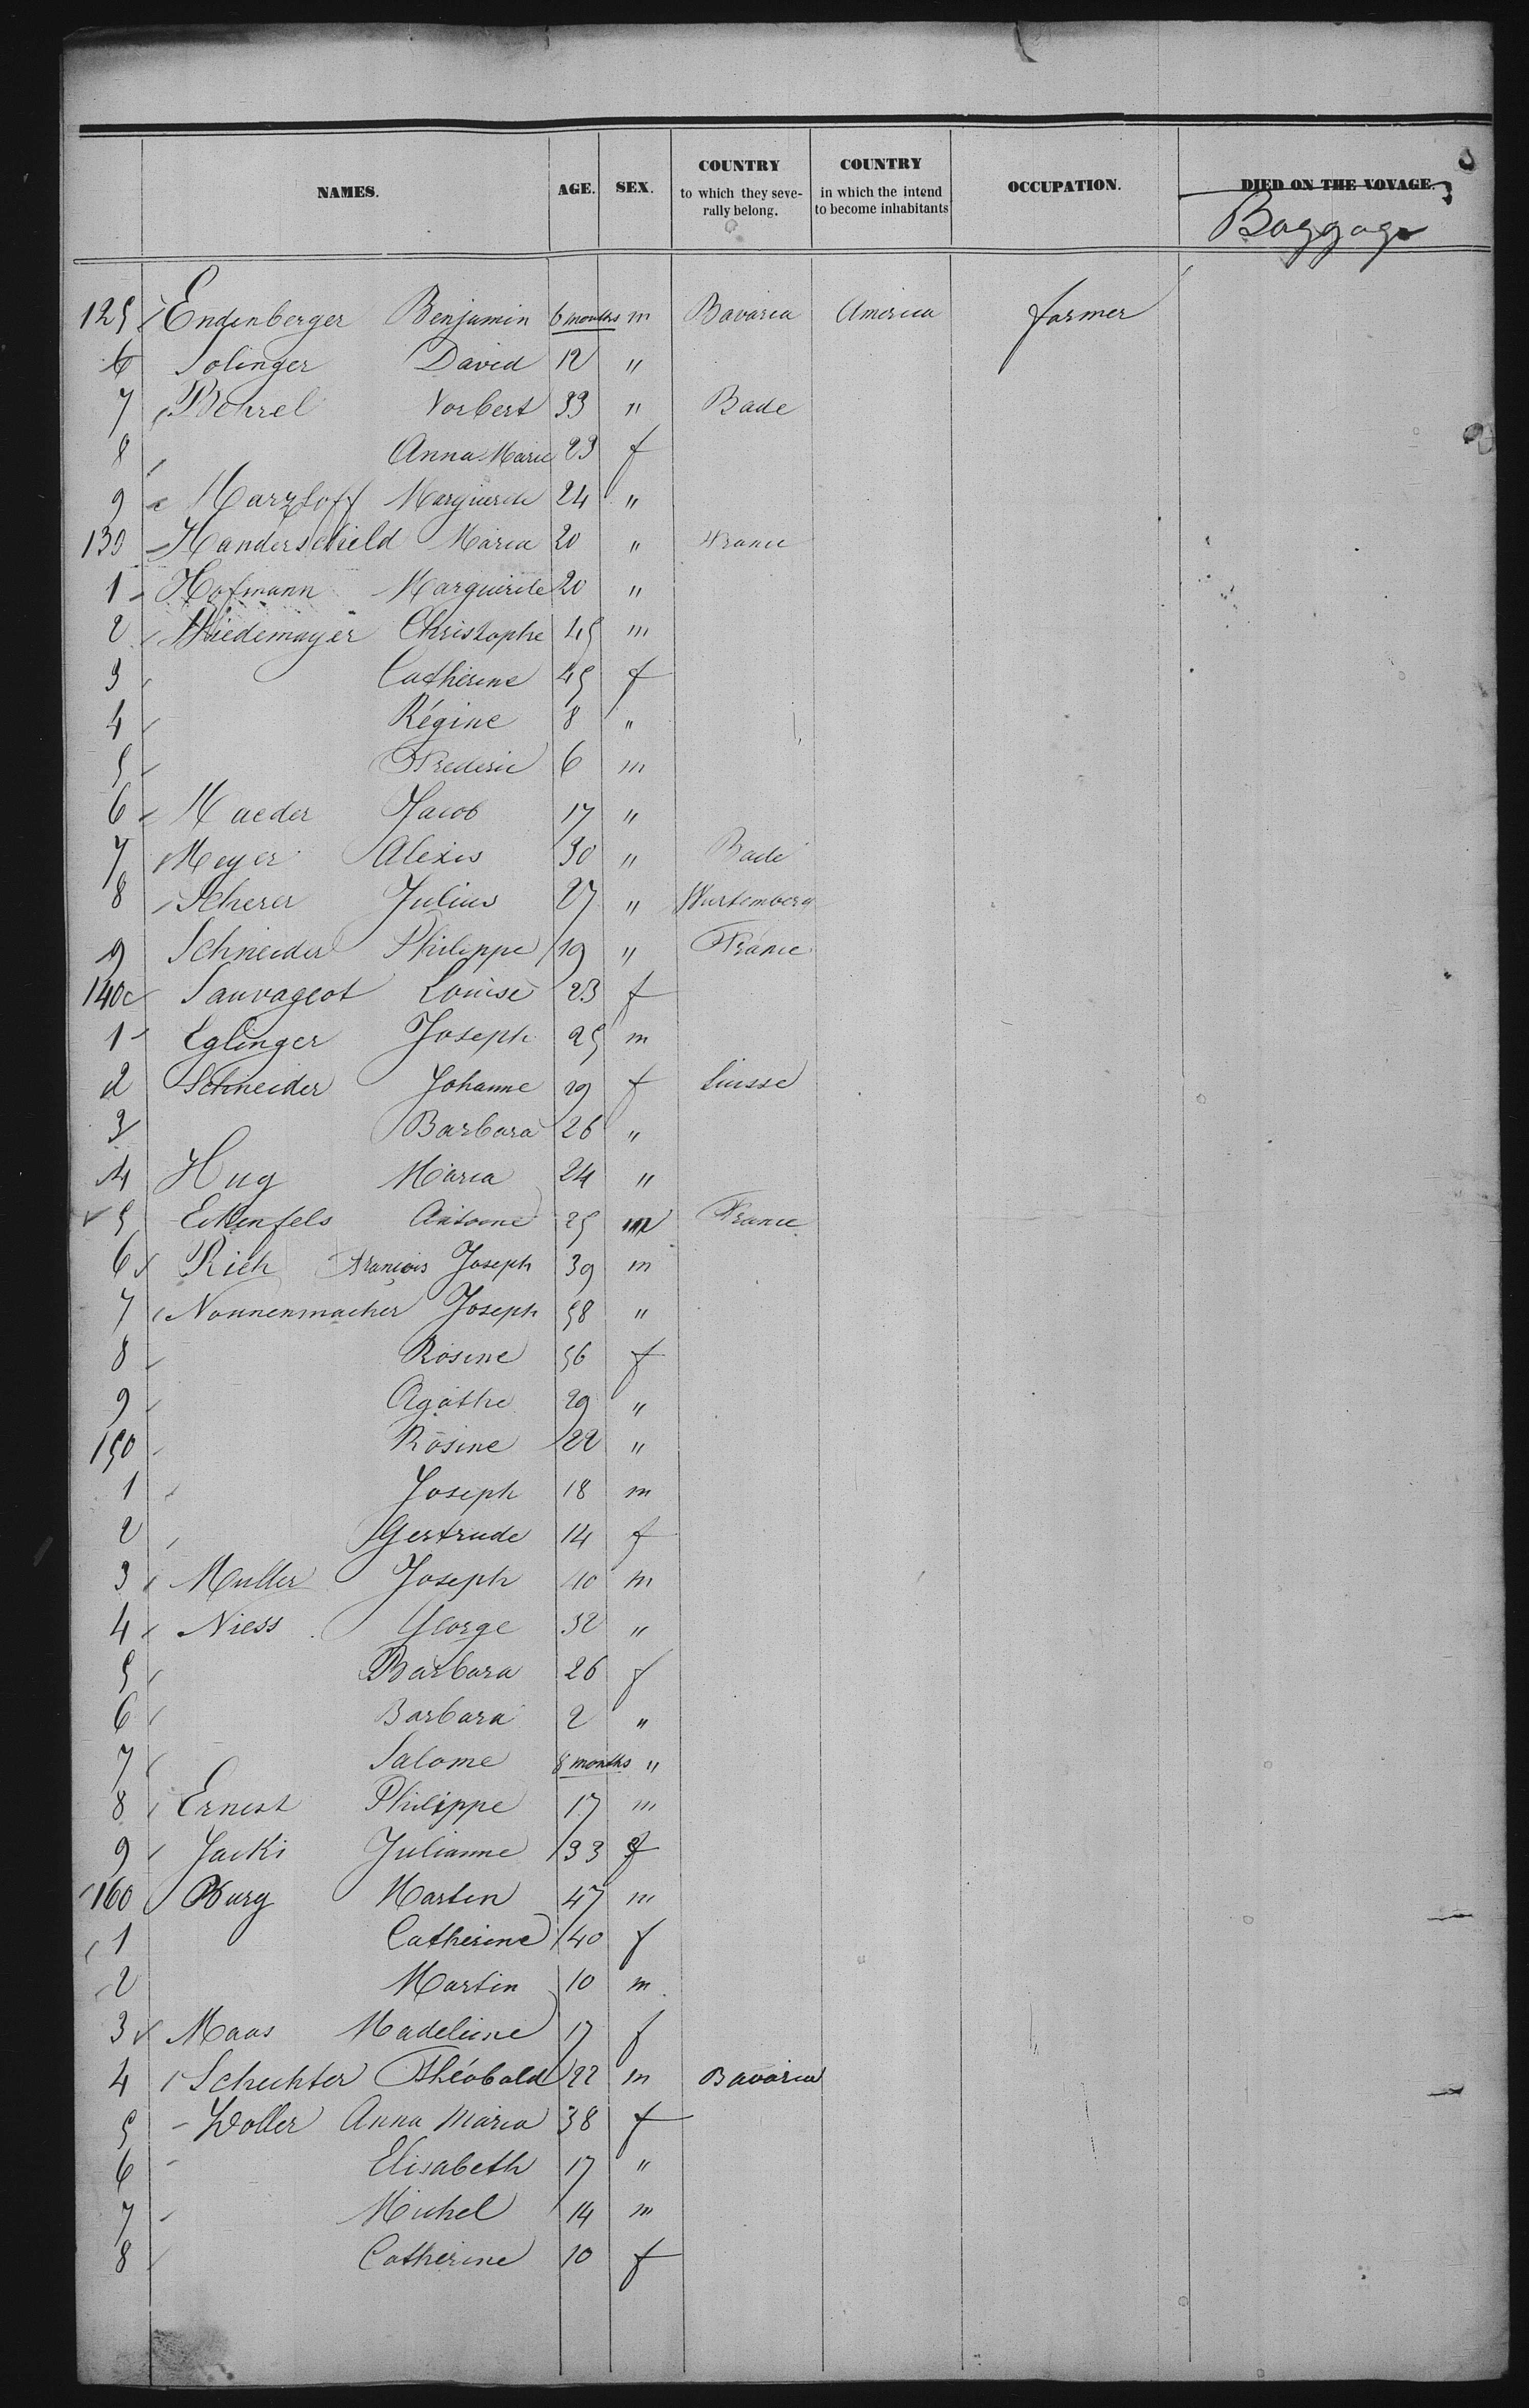 NAMES. AGE. SEX. COUNTRY to which they severally belong. COUNTRY in which the intend to become inhabitants OCCUPATION. DIED ON THE VOYAGE.
Baggage
125 Endenberger Benjamin 6 months m Bavaria America farmer
6 Solinger David 12 "
7 Bohrel Norbert 33 " Bade
8 Anna Marie 23 f
9 Marzloff Marguerite 24 "
130 Handerschield Maria 20 " France
1 Hofmann Marguerite 20 "
2 Wiedemayer Christophe 45 m
3 Catherine 45 f
4 Régine 8 "
5 Frederic 6 m
6 Maeder Jacob 17 "
7 Meyer Alexis 30 " Bade
8 Scherer Julius 27 " Wurtemberg
9 Schneider Philippe 19 " France
140 Sauvageot Louise 23 f
1 Eglinger Joseph 25 m
2 Schneider Johanne 29 f Suisse
3 Barbara 26 "
4 Hug Maria 24 "
5 Eckenfels Antoine 25 m France
6 Rich François Joseph 39 m
7 Nonnenmacher Joseph 58 "
8 Rosine 56 f
9 Agathe 29 "
150 Rosine 22 "
1 Joseph 18 m
2 Gertrude 14 f
3 Muller Joseph 40 m
4 Niess George 32 "
5 Barbara 26 f
6 Barbara 2 "
7 Salome 8 months "
8 Ernest Philippe 17 m
9 Jacki Julianne 33 f
160 Burg Martin 47 m
1 Catherine 40 f
2 Martin 10 m
3 Maas Madeleine 17 f
4 Schechter Théobald 22 m Bavaria
5 Woller Anna Maria 38 f
6 Elisabeth 17 "
7 Michel 14 m
8 Catherine 10 f